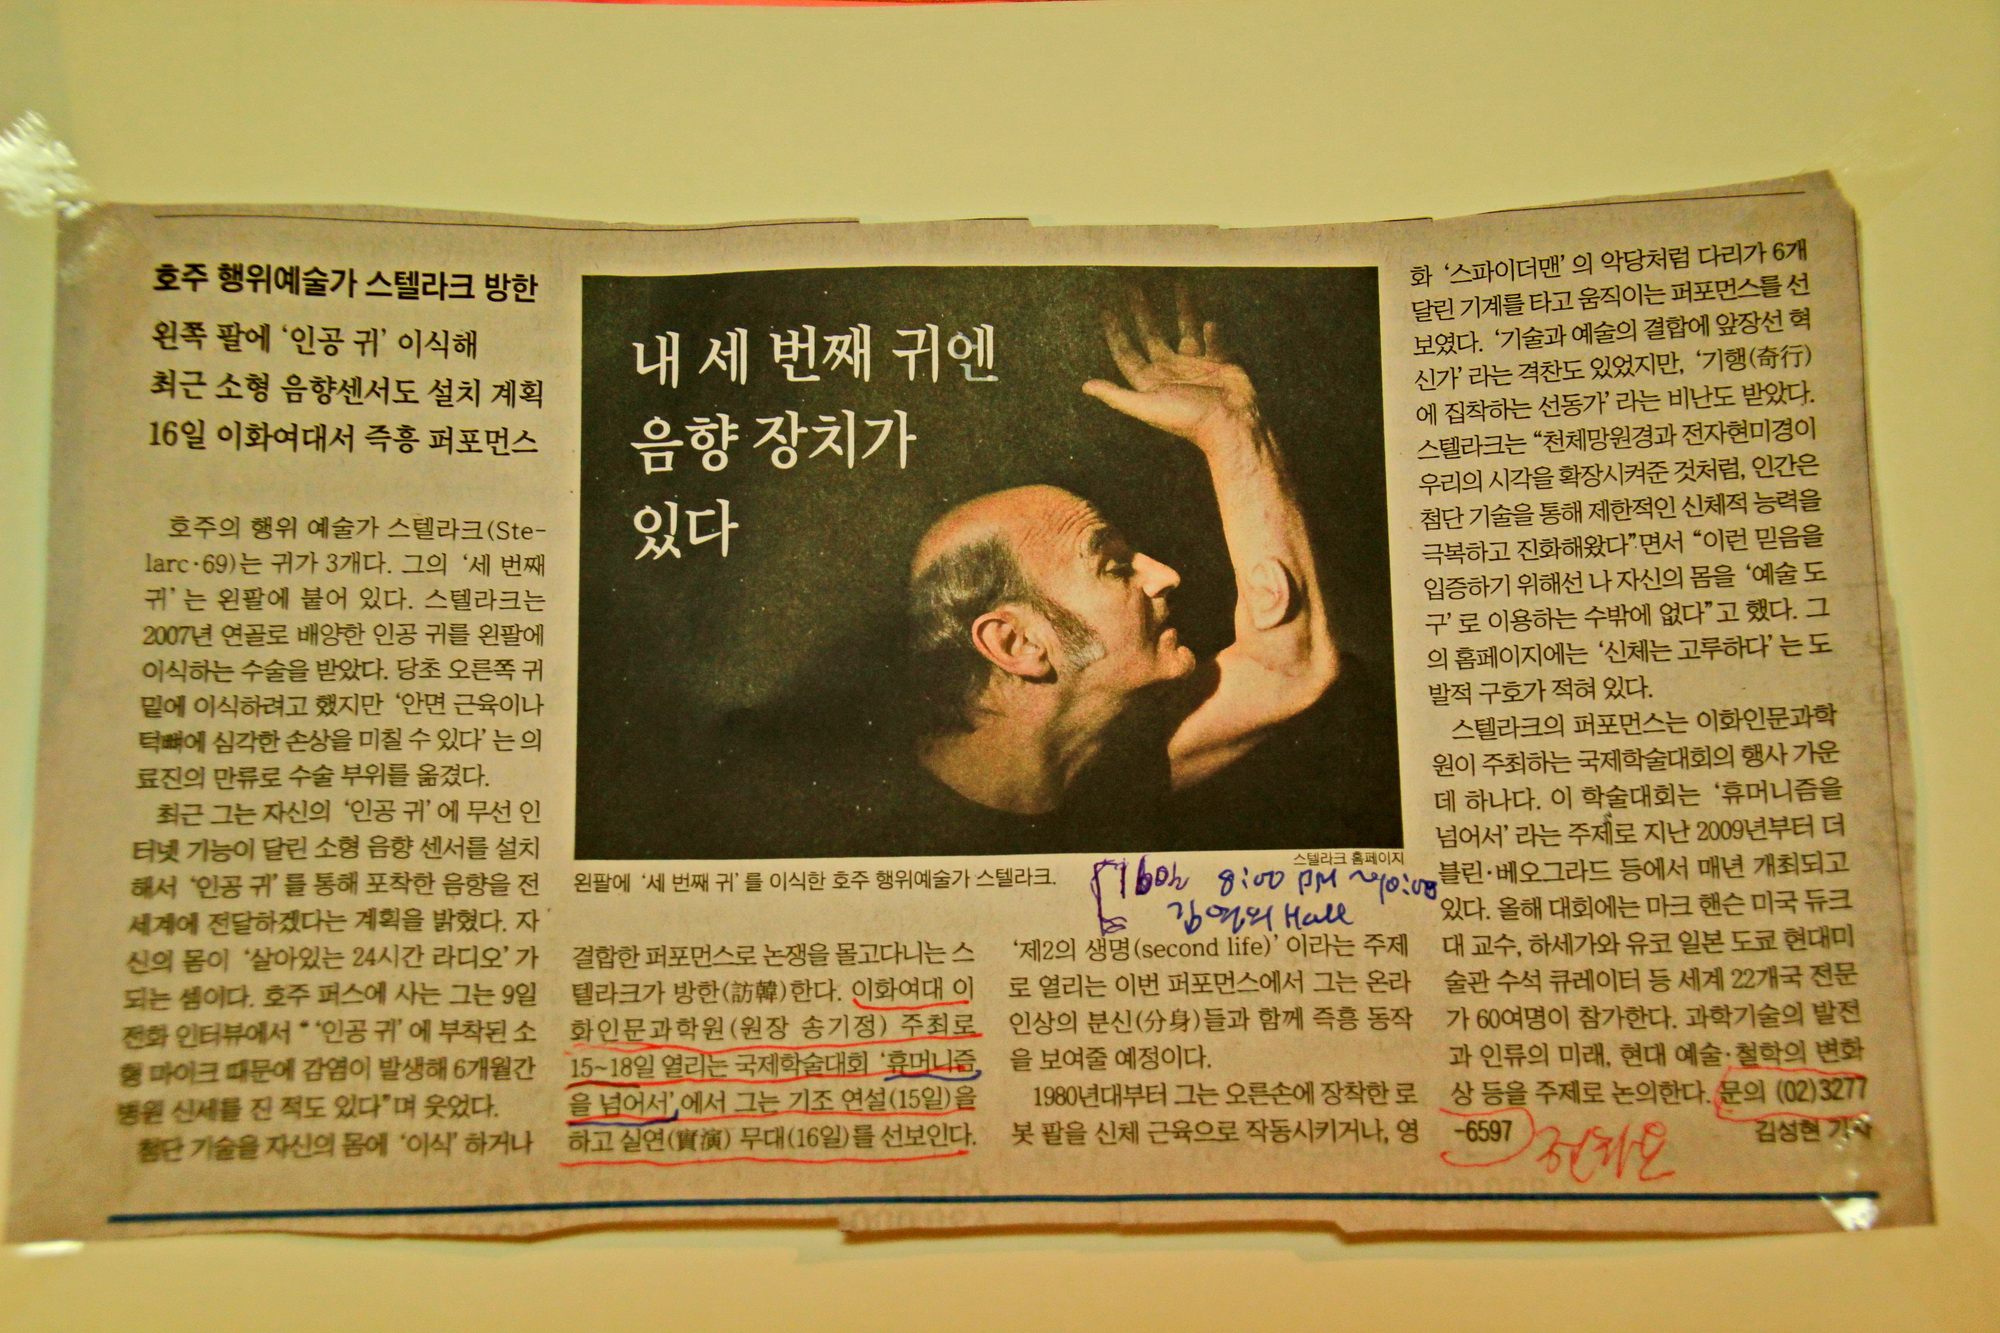 호주 행위예술가 스텔라크 방한
왼쪽 팔에 ‘인공 귀’ 이식해
최근 소형 음향센서도 설치 계획
16일 이화여대서 즉흥 퍼포먼스
호주의 행위 예술가 스텔라크(Ste-
larc·69)는 귀가 3개다. 그의 ‘세 번째
귀’는 왼팔에 붙어 있다. 스텔라크는
2007년 연골로 배양한 인공 귀를 왼팔에
이식하는 수술을 받았다. 당초 오른쪽 귀
밑에 이식하려고 했지만 ‘안면 근육이나
턱뼈에 심각한 손상을 미칠 수 있다’는 의
료진의 만류로 수술 부위를 옮겼다.
최근 그는 자신의 ‘인공 귀’에 무선 인
터넷 기능이 달린 소형 음향 센서를 설치
해서 ‘인공 귀’를 통해 포착한 음향을 전
세계에 전달하겠다는 계획을 밝혔다. 자
신의 몸이 ‘살아있는 24시간 라디오’가
되는 셈이다. 호주 퍼스에 사는 그는 9일
전화 인터뷰에서 “‘인공 귀’에 부착된 소
형 마이크 때문에 감염이 발생해 6개월간
병원 신세를 진 적도 있다”며 웃었다.
첨단 기술을 자신의 몸에 ‘이식’하거나
내 세 번째 귀엔
음향 장치가
있다
스텔라크 홈페이지
왼팔에 ‘세 번째 귀’를 이식한 호주 행위예술가 스텔라크.
16일 8:00 PM ~10:00
김영의 Hall
결합한 퍼포먼스로 논쟁을 몰고다니는 스
텔라크가 방한(訪韓)한다. 이화여대 이
화인문과학원(원장 송기정) 주최로
15~18일 열리는 국제학술대회 ‘휴머니즘
을 넘어서’에서 그는 기조 연설(15일)을
하고 실연(實演) 무대(16일)를 선보인다.
‘제2의 생명(second life)’이라는 주제
로 열리는 이번 퍼포먼스에서 그는 온라
인상의 분신(分身)들과 함께 즉흥 동작
을 보여줄 예정이다.
1980년대부터 그는 오른손에 장착한 로
봇 팔을 신체 근육으로 작동시키거나, 영
화 ‘스파이더맨’의 악당처럼 다리가 6개
달린 기계를 타고 움직이는 퍼포먼스를 선
보였다. ‘기술과 예술의 결합에 앞장선 혁
신가’라는 격찬도 있었지만, ‘기행(奇行)
에 집착하는 선동가’라는 비난도 받았다.
스텔라크는 “천체망원경과 전자현미경이
우리의 시각을 확장시켜준 것처럼, 인간은
첨단 기술을 통해 제한적인 신체적 능력을
극복하고 진화해왔다”면서 “이런 믿음을
입증하기 위해선 나 자신의 몸을 ‘예술 도
구’로 이용하는 수밖에 없다”고 했다. 그
의 홈페이지에는 ‘신체는 고루하다’는 도
발적 구호가 적혀 있다.
스텔라크의 퍼포먼스는 이화인문과학
원이 주최하는 국제학술대회의 행사 가운
데 하나다. 이 학술대회는 ‘휴머니즘을
넘어서’라는 주제로 지난 2009년부터 더
블린·베오그라드 등에서 매년 개최되고
있다. 올해 대회에는 마크 핸슨 미국 듀크
대 교수, 하세가와 유코 일본 도쿄 현대미
술관 수석 큐레이터 등 세계 22개국 전문
가 60여명이 참가한다. 과학기술의 발전
과 인류의 미래, 현대 예술·철학의 변화
상 등을 주제로 논의한다. 문의 (02)3277
-6597
김성현 기자